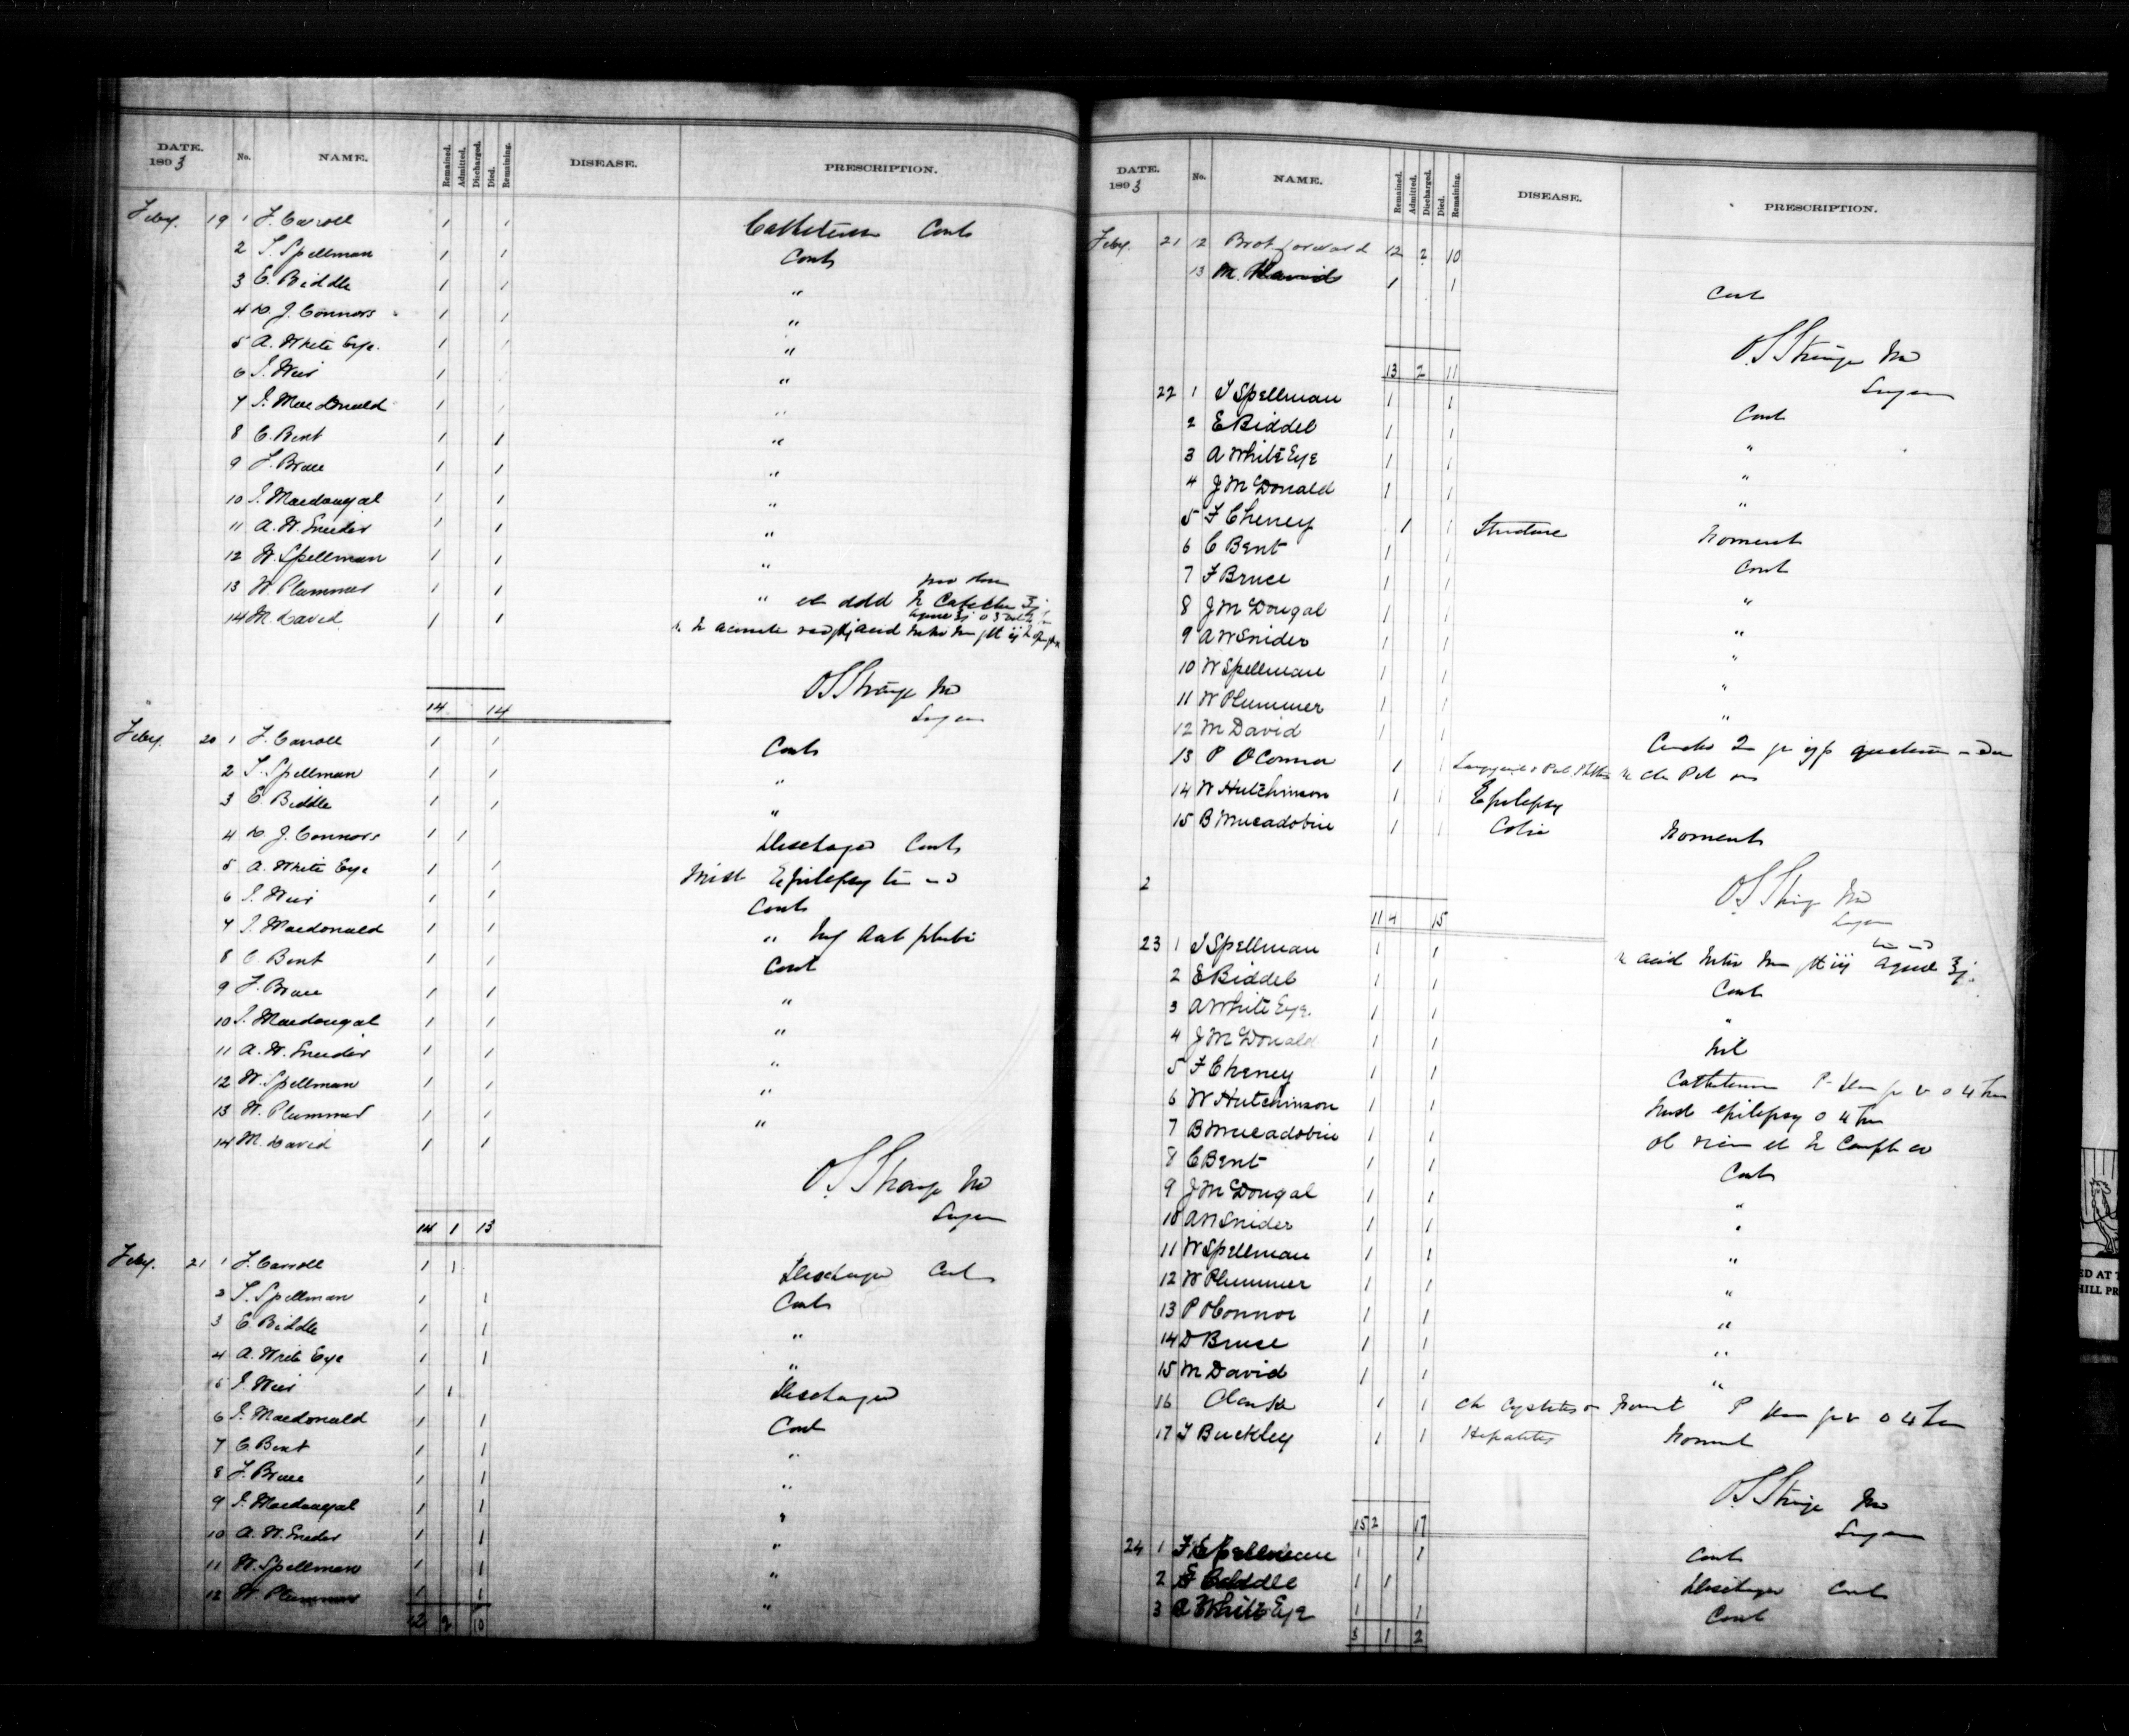 DATE. 1893 No. NAME. Remained. Admitted. Discharged. Died. Remaining. DISEASE. PRESCRIPTION.
Feby. 19 1 F. Carroll 1 1 Catheterism Cont
2 T. Spellman 1 1 Cont
3 E. Biddle 1 1 "
4 D. J. Connors 1 1 "
5 A. White Eye. 1 1 "
6 J. Weir 1 "
7 J. MacDonald 1 1 "
8 C. Bent 1 1 "
9 F. Bruce 1 1 "
10 J. Macdougal 1 1 "
11 A. W. Sneider 1 1 "
12 W. Spellman 1 1 "
13 W. Plummer 1 1 " et add
14 M. David 1 1 acid
14 14
O S Strange MD
Surgeon
Feby. 20 1 F. Carroll 1 1 Cont
2 T. Spellman 1 1 "
3 E. Biddle 1 1 "
4 D. J. Connors 1 1 Discharged Cont
5 A. White Eye 1 1 Mist Epilepsy
6 J. Weir 1 1 Cont
7 J. Macdonald 1 1 "
8 C. Bent 1 1 Cont
9 F. Bruce 1 1 "
10 J. Macdougal 1 1 "
11 A. W. Sneider 1 1 "
12 W. Spellman 1 1 "
13 W. Plummer 1 1 "
14 M. David 1 1
O S Strange MD
Surgeon
14 1 13
Feby. 21 1 F. Carroll 1 1 Discharged Cont
2 T. Spellman 1 1 Cont
3 E. Biddle 1 1 "
4 A. White Eye 1 1 "
5 J. Weir 1 1 Discharged
6 J. Macdonald 1 1 Cont
7 C. Bent 1 1 "
8 F. Bruce 1 1 "
9 J. Macdougal 1 1 "
10 A. W. Sneider 1 1 "
11 W. Spellman 1 1 "
12 W. Plummer 1 1 "
12 2 10
DATE. 1893 No. NAME. Remained. Admitted. Discharged. Died. Remaining. DISEASE. PRESCRIPTION.
Feby. 21 12 Brot forward 12 2 10
13 M. David 1 1 Cont
O S Strange MD
Surgeon
13 2 11
22 1 T Spellman 1 1 Cont
2 E Biddel 1 1 "
3 A White Eye 1 1 "
4 J McDonald 1 1 "
5 F Cheney 1 1 Stricture Noment
6 C Bent 1 1 Cont
7 F Bruce 1 1 "
8 J McDougal 1 1 "
9 A W Snider 1 1 "
10 W Spellman 1 1 "
11 W Plummer 1 1 "
12 M David 1 1
13 P O Connor 1 1
14 W Hutchinson 1 1 Epilepsy
15 B Mucadobiie 1 1 Colic Noment
O S Strange MD
Surgeon
2
11 4 15
23 1 T Spellman 1 1 acid aquae
2 E Biddel 1 1 Cont
3 A White Eye. 1 1 "
4 J McDonald 1 1 Nil
5 F Cheney 1 1 Catheterism
6 W Hutchinson 1 1 Mist epilepsy
7 B Mucadobiie 1 1
8 C Bent 1 1 Cont
9 J McDougal 1 1 "
10 A W Snider 1 1 "
11 W Spellman 1 1 "
12 W Plummer 1 1 "
13 P O Connor 1 1 "
14 D Bruce 1 1 "
15 M David 1 1 "
16 Clarke 1 1 Ch Cystitis Noment
17 T Buckley 1 1 Hepatitis Noment
O S Strange MD
Surgeon
15 2 17
24 1 Spellman 1 1 Cont
2 E Biddle 1 1 Discharged Cont
3 A White Eye 1 1 Cont
3 1 2
ED AT T
HILL PR